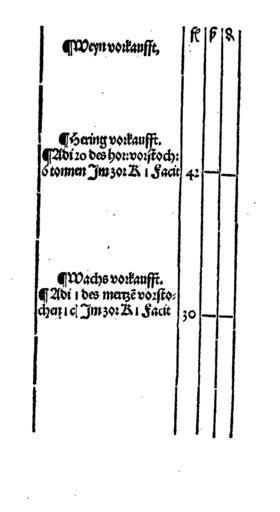 fl ß ₰
¶Weyn vorkaufft,
¶Hering vorkaufft.
¶Adi 20 des hor:vorstoch:
6 tonnen Im zor K 1 Facit 42 — —
¶Wachs vorkaufft.
¶Adi 1 des mertzē vorsto-
chen 1 c Im zor K 1 Facit 30 — —